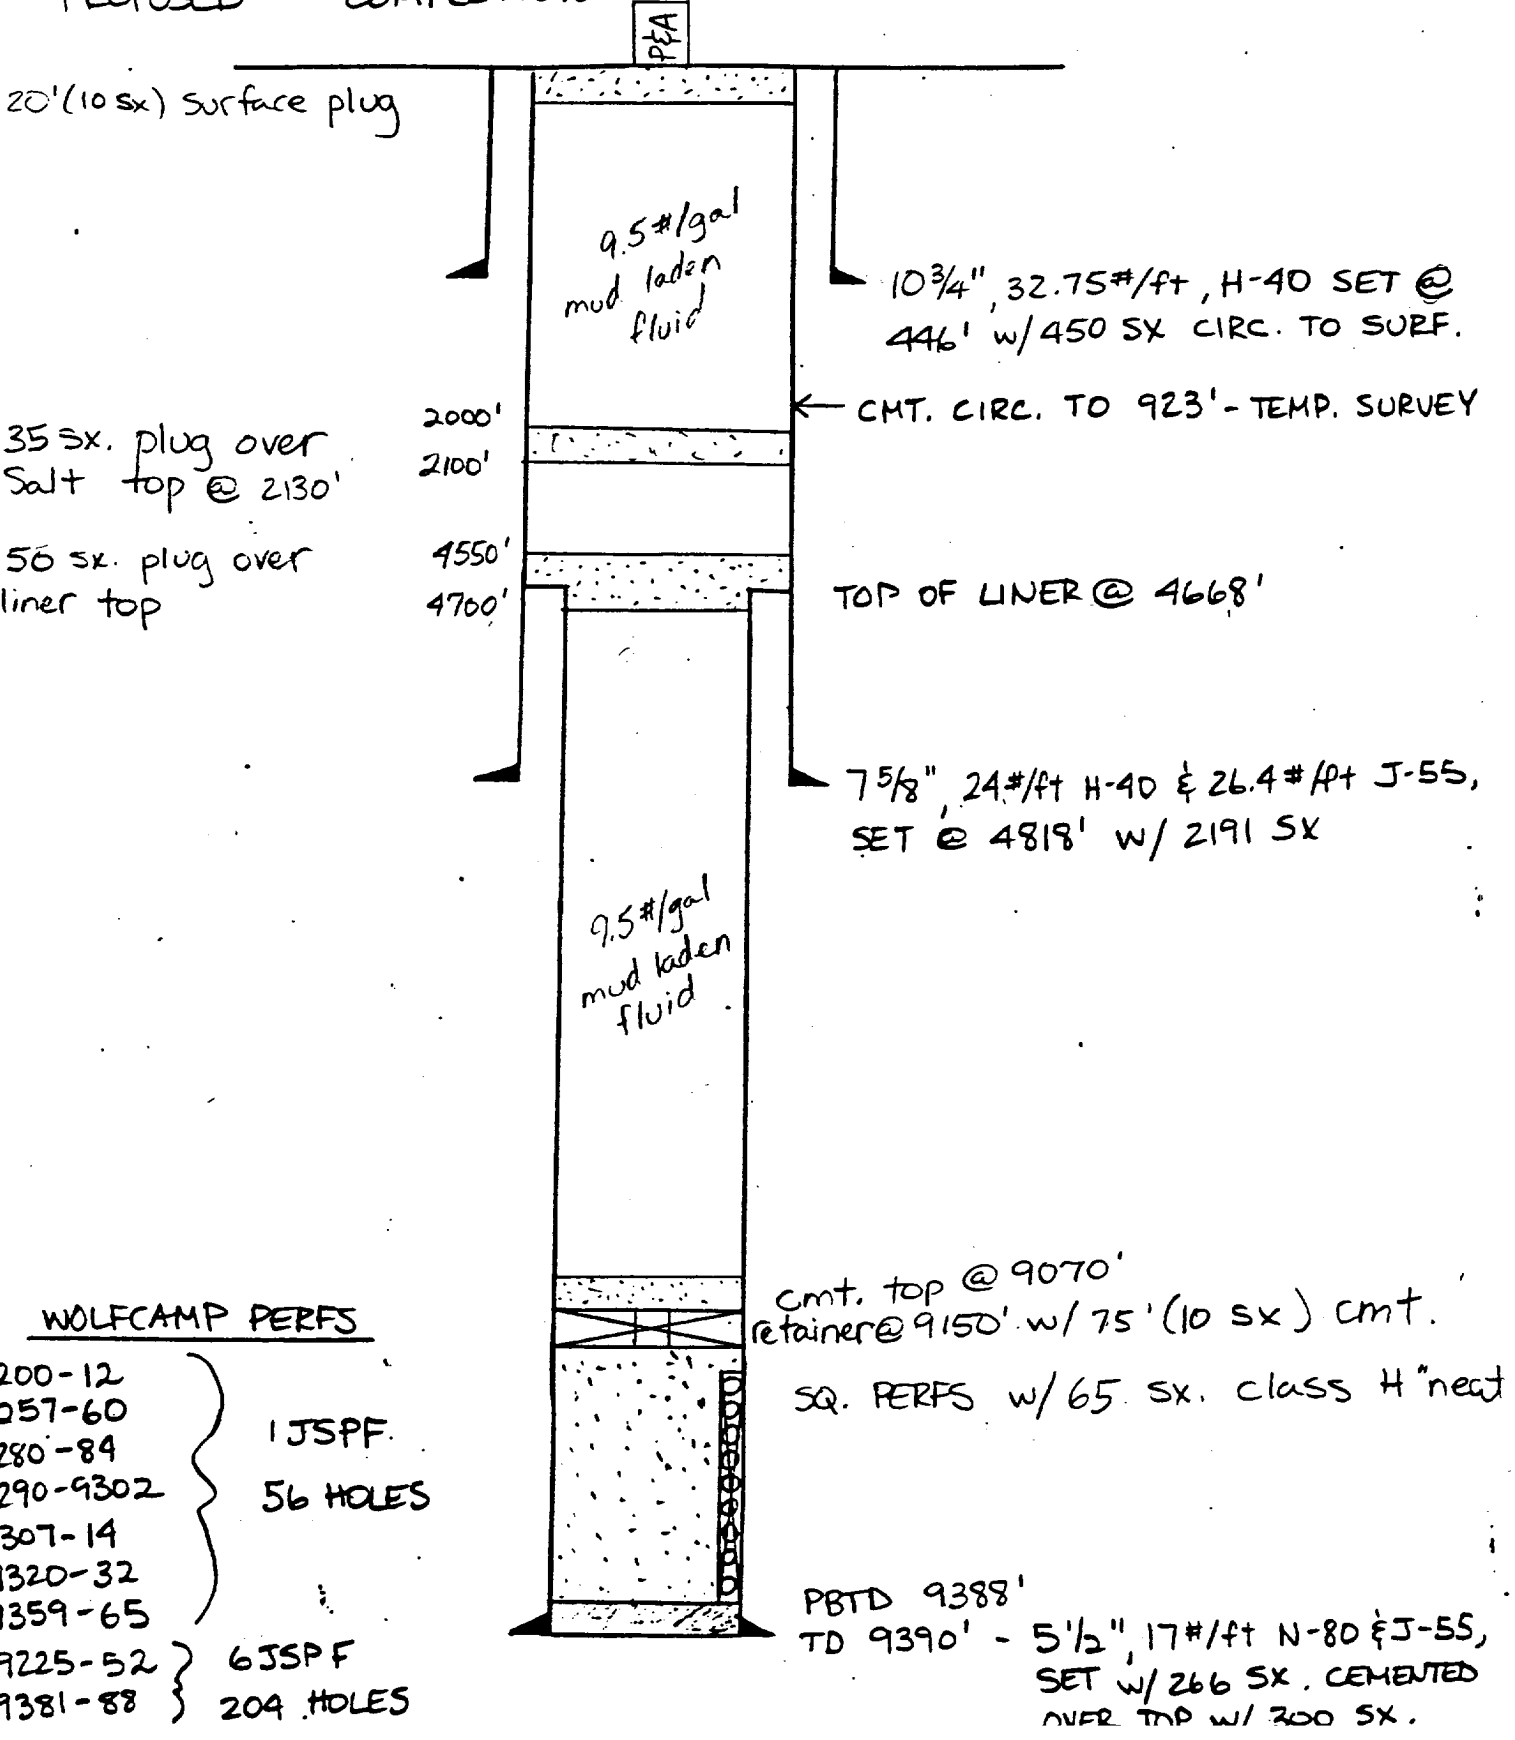 PROPOSED COMPLETION
P&A
20'(10 sx) surface plug
9.5#/gal
mud laden
fluid
10 3/4", 32.75#/ft, H-40 SET @
446' w/450 SX CIRC. TO SURF.
CMT. CIRC. TO 923'- TEMP. SURVEY
2000'
35 sx. plug over
Salt top @ 2130'
2100'
50 sx. plug over
liner top
4550'
4700'
TOP OF LINER @ 4668'
7 5/8", 24#/ft H-40 & 26.4#/ft J-55,
SET @ 4818' w/ 2191 SX
9.5#/gal
mud laden
fluid
cmt. top @ 9070'
retainer@ 9150' w/ 75'(10 sx) cmt.
SQ. PERFS w/65 sx. class H "neat
WOLFCAMP PERFS
200-12
257-60
280-84
290-9302
307-14
320-32
359-65
1 JSPF.
56 HOLES
9225-52
9381-88
6 JSPF
204 HOLES
PBTD 9388'
TD 9390' - 5 1/2", 17#/ft N-80 & J-55,
SET w/ 266 SX. CEMENTED
OVER TOP w/ 300 SX.